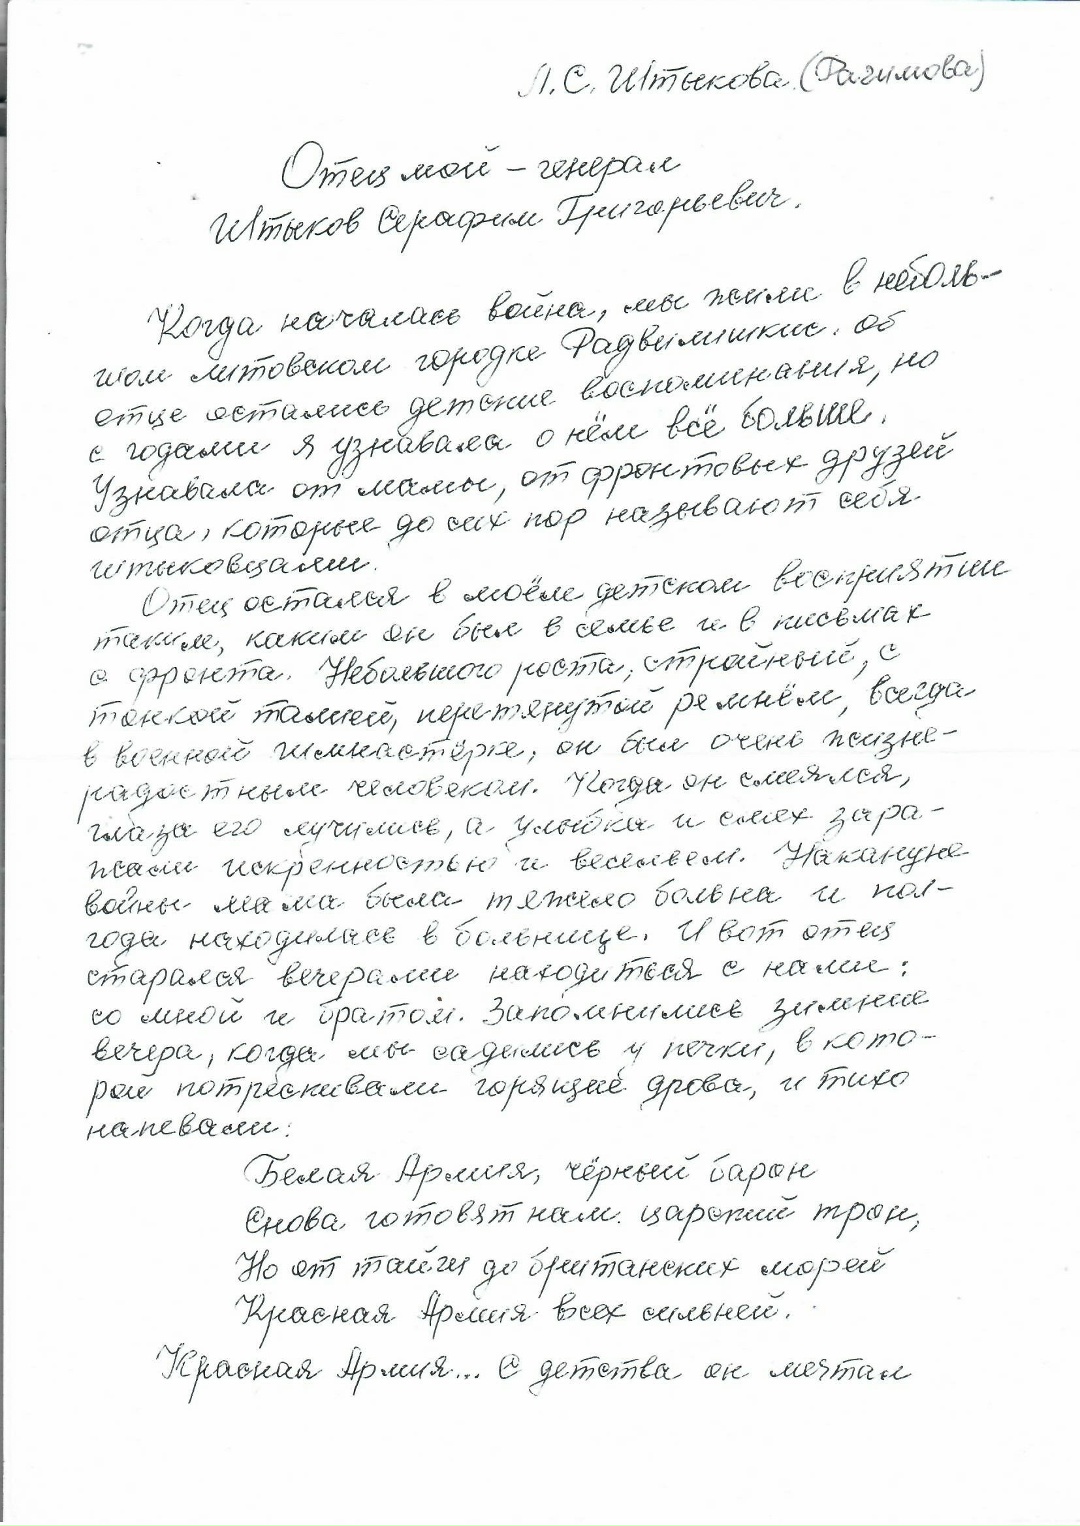 Л.С. Штыкова (Рагимова)
Отец мой – генерал
Штыков Серафим Григорьевич.
Когда началась война, мы жили в неболь-
шом литовском городке Радвилишкис. Об
отце остались детские воспоминания, но
с годами я узнавала о нём всё больше.
Узнавала от мамы, от фронтовых друзей
отца, которые до сих пор называют себя
штыковцами.
Отец остался в моём детском восприятии
таким, каким он был в семье и в письмах
с фронта. Небольшого роста, стройный, с
тонкой талией, перетянутой ремнём, всегда
в военной гимнастёрке, он был очень жизне-
радостным человеком. Когда он смеялся,
глаза его лучились, а улыбка и смех зара-
жали искренностью и весельем. Накануне
войны мама была тяжело больна и пол-
года находилась в больнице. И вот отец
старался вечерами находиться с нами:
со мной и братом. Запомнились зимние
вечера, когда мы садились у печки, в кото-
рой потрескивали горящие дрова, и тихо
напевали:
Белая Армия, чёрный барон
Снова готовят нам царский трон,
Но от тайги до британских морей
Красная Армия всех сильней.
Красная Армия... С детства он мечтал